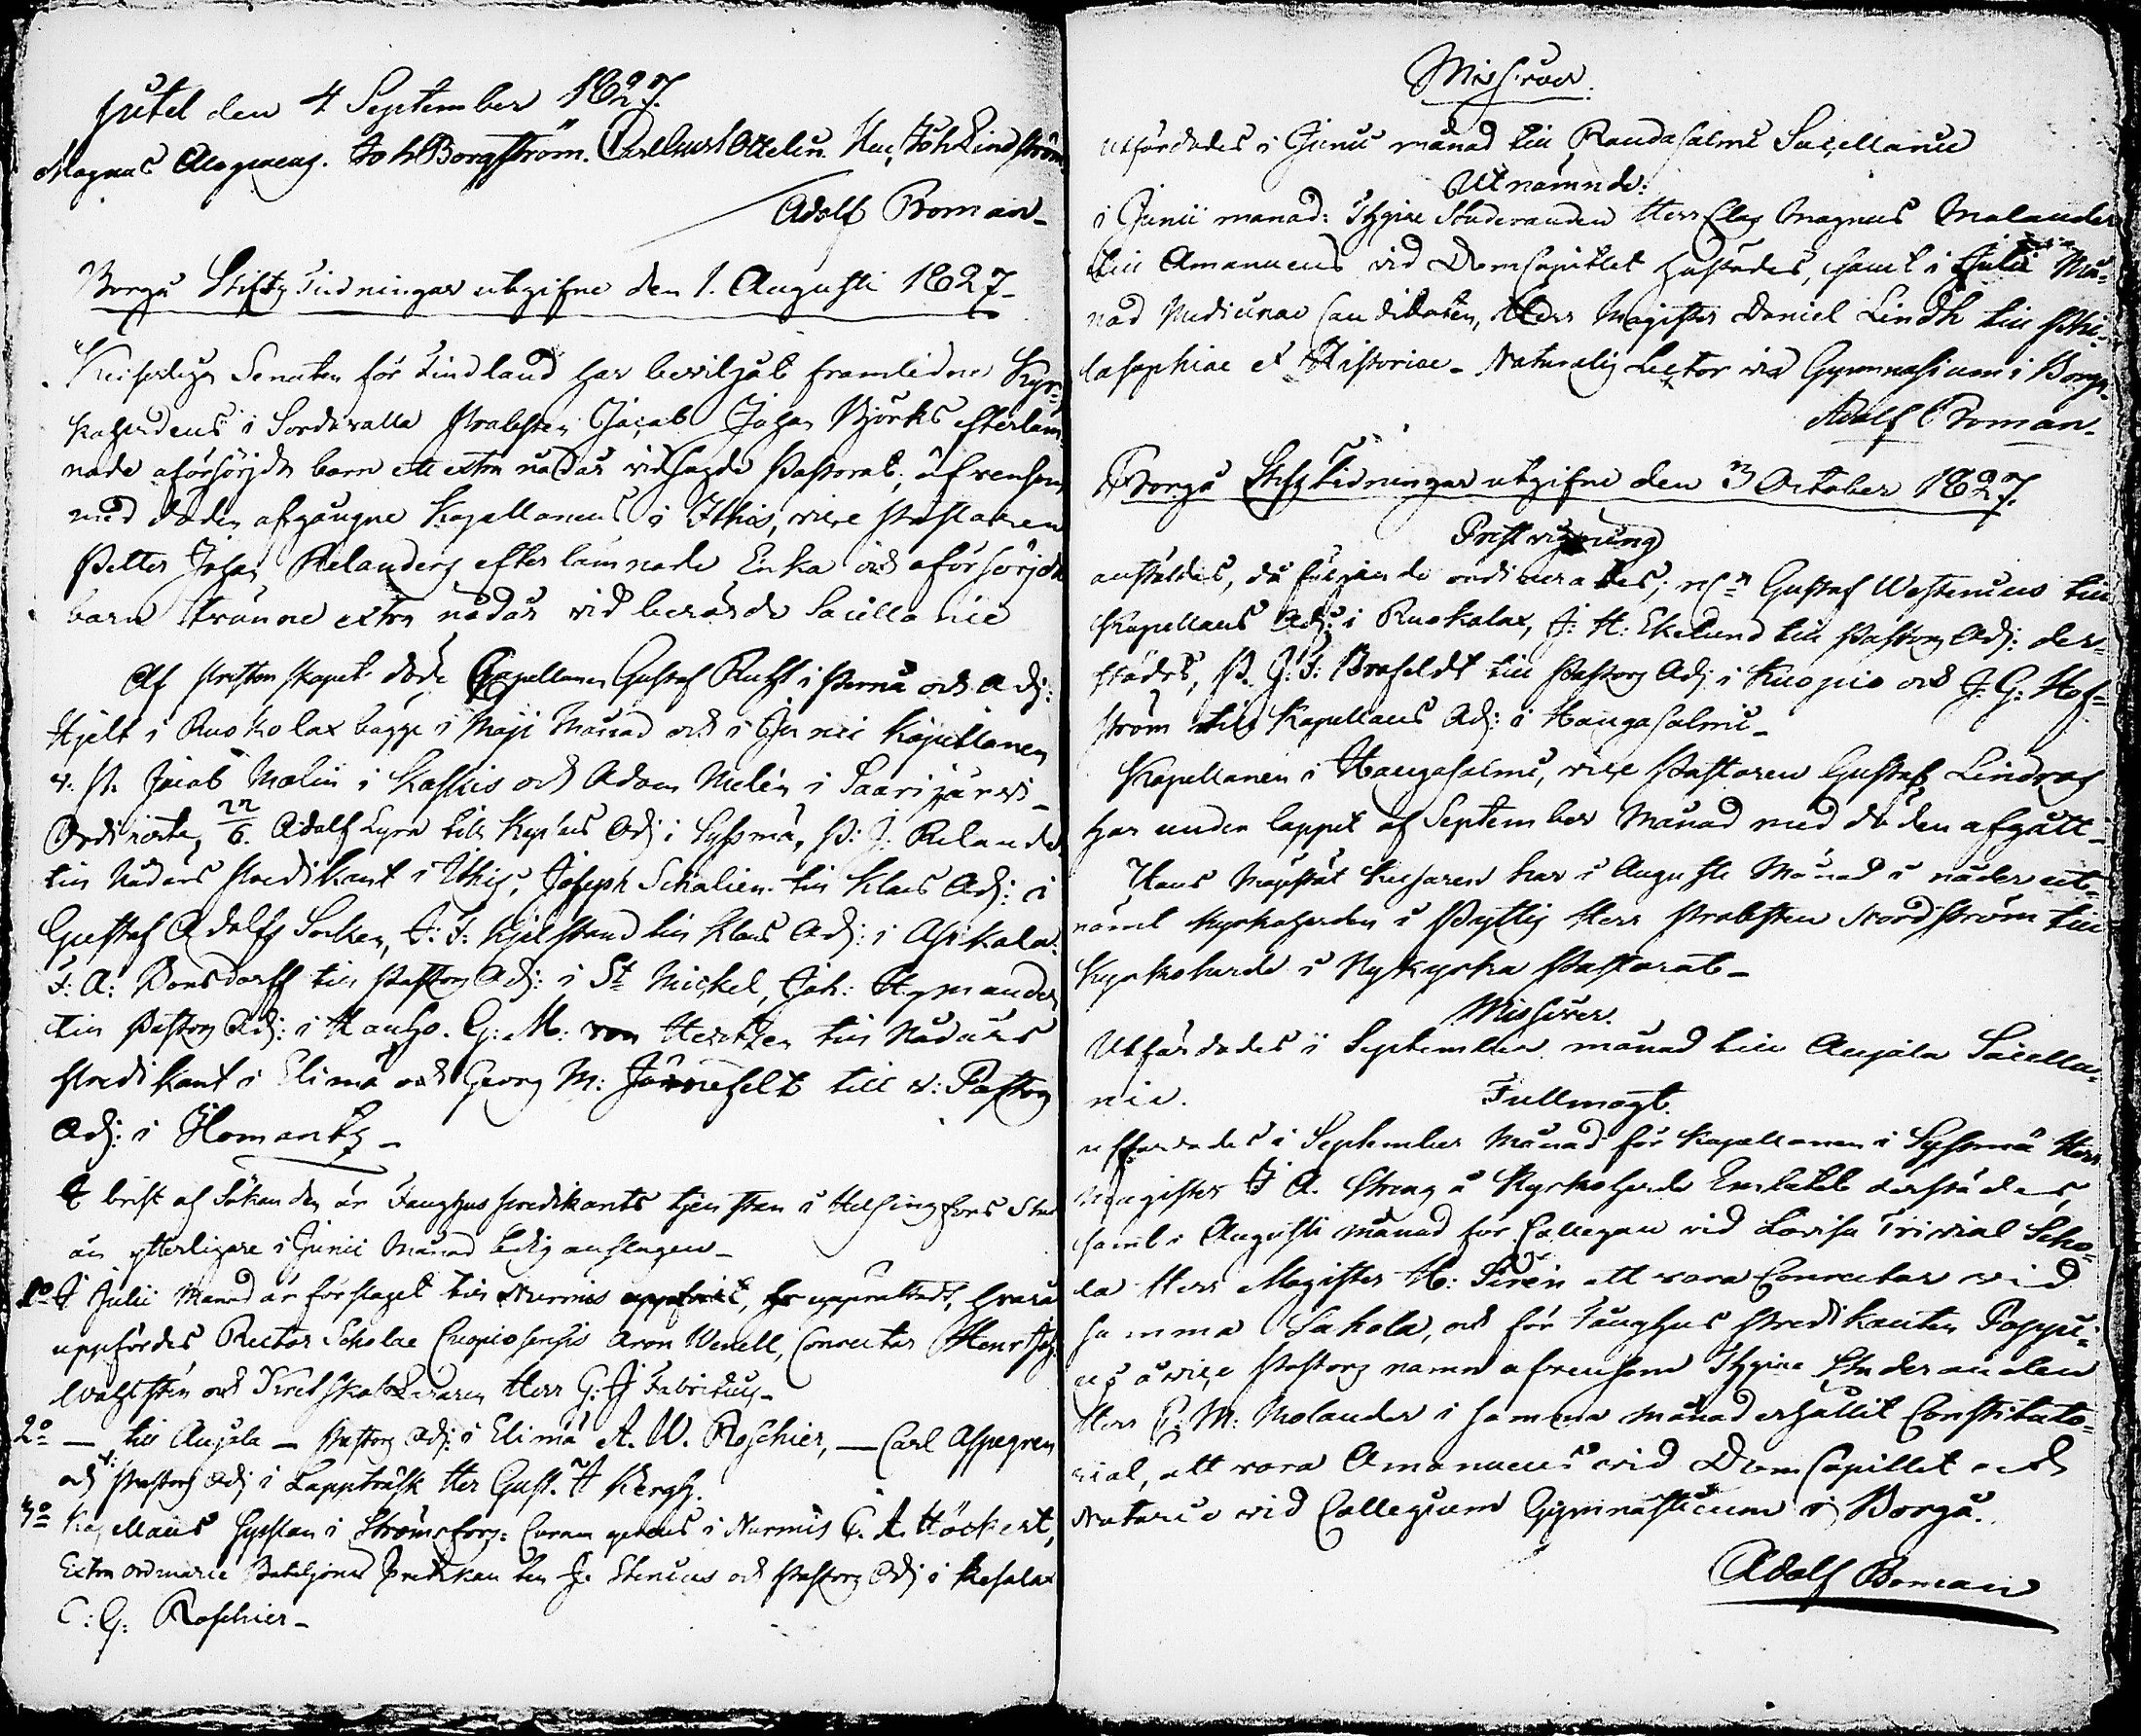 Jutel den 4 September 1827.
Magnus Alopaeus. Joh Borgström. Carl Ottelin. Joh Lindström
Adolf Boman
Borgå Stifts Tidningar utgifne den 1. Augusti 1827
Kejserliga Senaten för Finland har beviljat framledne Kyr-
koherdens i Sordavalla Probsten Jacob Johan Björks efterläm-
nade oförsörjde barn ett extra nådår vid sagde Pastorat, äfvensom
med döden afgångne Kapellanens i Ithis, vice Pastoren
Petter Johan Relanders efterlämnade Enka och oförsörjde
barn tvänne extra nådår vid berörde Sacellanie
Af Presterskapet döde Capellanen Gustaf Ruth i Pernå och Adj:
Hjelt i Ruokolax bägge i Maji Månad och i Junii Kapellanen
v. P. Jacob Molin i Kaskis och Adam Melén i Saarijärvi
Ordinerte, 22/6. Adolf Lyra till Kap:ns Adj i Sysmä, P: J. Relander
till Nådårs Predikant i Ithis, Joseph Schalien till Klans Adj: i
Gustaf Adolfs Socken, F: F: Hjelstrand till Klans Adj: i Asikala.
F: A: Bonsdorff till Pastors Adj: i S:t Michel, Joh: Hymander
till Pastors Adj: i Hauho. G: M: von Hertzen till Nådårs
Predikant i Elimä och Georg M: Järnefelt till v: Pastors
Adj: i Ilomants
I brist af Sökanden är Fånghus predikants tjensten i Helsingfors Stad
än ytterligare i Junii Månad ledig anslagen
1:o I Julii Månad är förslaget till Nurmis upprättadt, hvarå
uppfördes Rector Scholae Cuopiosensis Aron Wenell, Conrector Henr Joh.
Wahlstén och Kretsskole Läraren Herr G: J Fabritius
2:o — till Anjala — Pastors Adj: i Elimä A. W. Roschier, — Carl Aspegren
och v: Pastors Adj i Lappträsk Herr Gust. A Bergh.
3:o Kapellans Sysslan i Strömsfors: Curam gerens i Nurmis C. A. Höckert,
Extra ordinarie Bataljons Predikanten J. Stenius och Pastors Adj i Kesalax
C: G: Roschier
Missiver.
Utfärdades i Junii månad till Randasalmi Sacellanie
Utnämnde:
i Junii månad: Philosophiae Studeranden Herr Claes Magnus Molander
till Amanuens vid Domcapitlet härstädes, samt i Julii Må-
nad Medicinae Candidaten, Herr Magister Daniel Lindh till Phi-
losophiae et Historiae Naturalis Lector vid Gymnasium i Borgå.
Adolf Boman.
Borgå Stifts Tidningar utgifne den 3 October 1827.
Prestvigning
anställdes, då följande ordinerades; nl:n Gustaf Westenius till
Kapellans Adj: i Ruokolax, J: H: Ekelund till Pastors Adj: der-
städes, P. J: F: Brofeldt till Pastors Adj i Kuopio och J: G: Hof-
ström till Kapellans Adj: i Haugasalmi
Kapellanen i Haugasalmi, vice Pastoren Gustaf Lindroos
har under loppet af September Månad med döden afgått
Hans Majestät Kejsaren har i Augusti Månad i nåder ut-
nämt Kyrkoherden i Pyttis Herr Probsten Nordström till
Kyrkoherde i Nykyrka Pastorat
Missiver.
Utfärdades i September månad till Anjala Sacella-
nie.
Fullmagt.
utfärdades i September Månad för Kapellanen i Sysmä Herr
Magister J A. Streng å Kyrkoherde Embetet derstädes,
samt i Augusti månad för Collegan vid Lovisa Trivial Scho-
la Herr Magister H: Sirén att vara Conrector vid
samma Schola, och för Fånghus Predikanten Poppi-
us å vice Pastors namn äfvensom Philosophiae Studeranden
Herr C: M: Molander i samma månad erhållit Constituto-
rial, att vara Amanuens vid DomCapitlet och
Notarie vid Collegium Gymnasticum i Borgå.
Adolf Boman